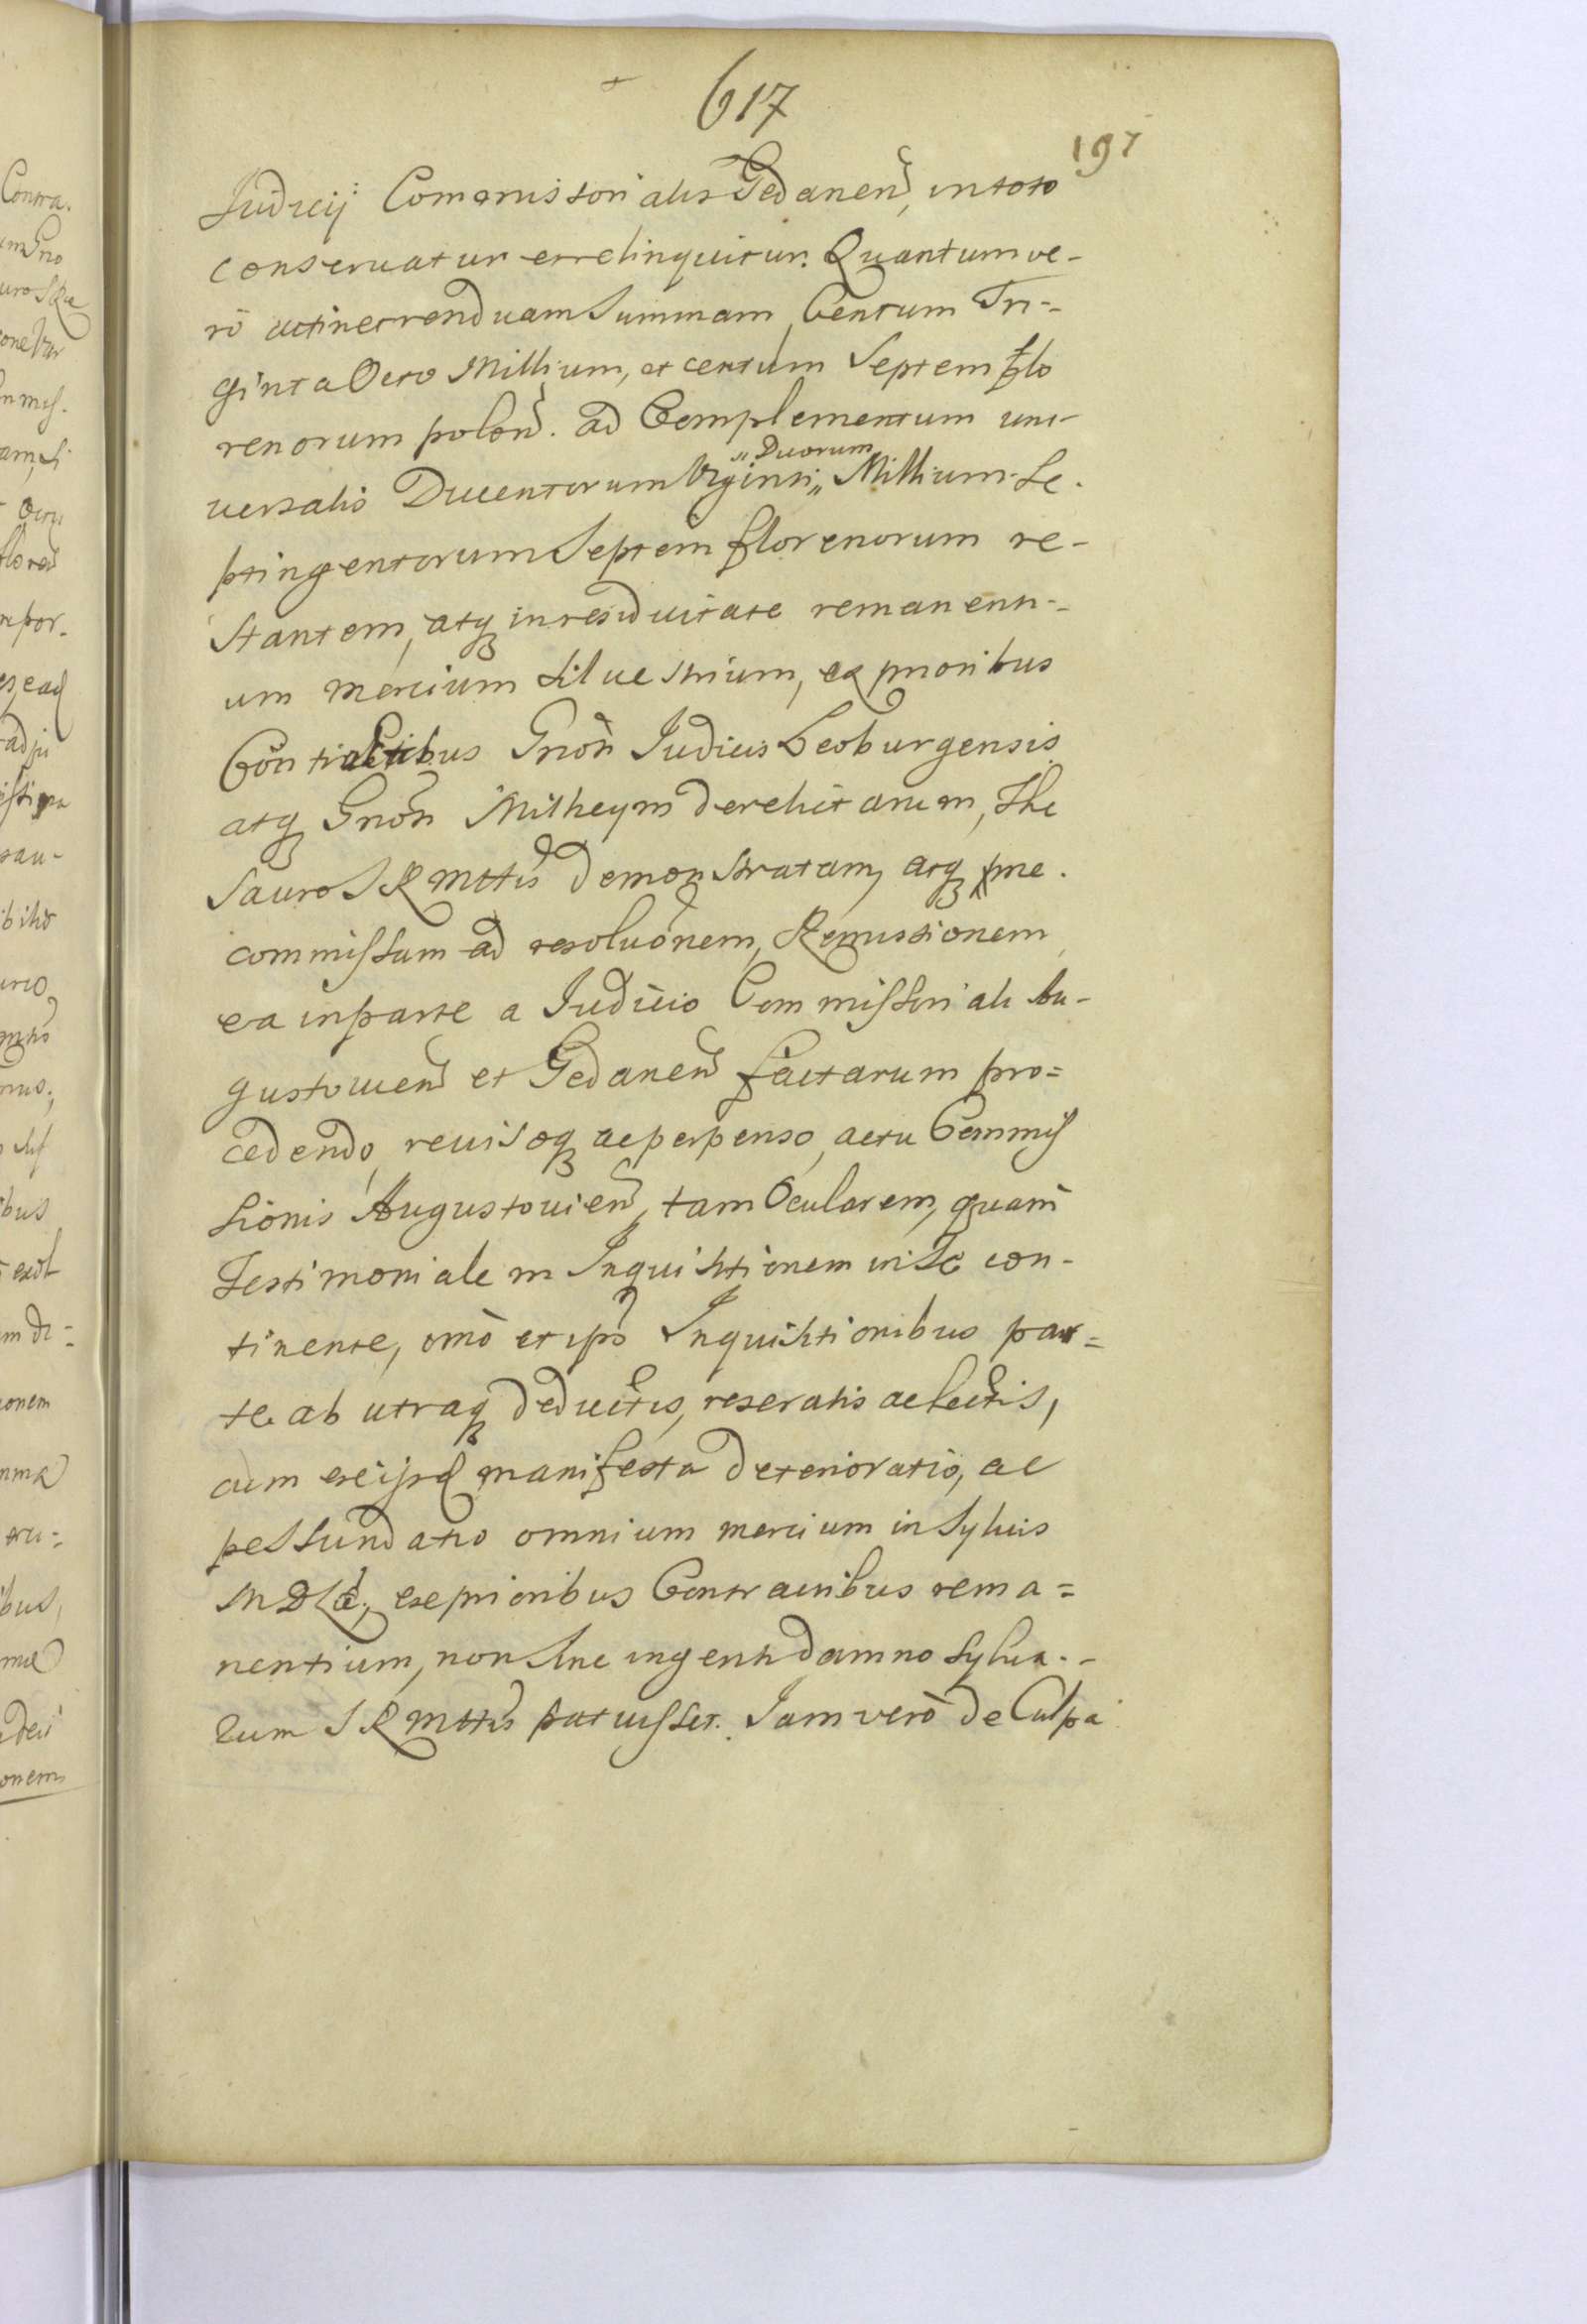 617
197
Judicij Commissorialis Gedanen, in toto
conseruatur et relinquitur. Quantum ve-
rò attinet renduam Summam Centum Tri-
ginta Octo Millium, et centum Septem flo
renorum polon. ad Complementum uni-
"Duorum
uersalis Ducentorum Viginti" Millium Se-
ptingentorum Septem florenorum re-
stantem, atq in residuitate remanenti-
um mercium Siluestrium, ex prioribus
Contractibus Gnosi Judicis Leoburgensis
atq Gnosi Milheym derelictarum, The
sauro S R Mttis demonstratam, atq pre.
commissum ad resoluonem, Remissionem
ea in parte a Judicio Commissoriali Au-
gustouien et Gedanen factarum pro=
cedendo, reuisoq ac perpenso, actu Commis
sionis Augustouien, tam Ocularem, quam
Testimonialem Inquisitionem in se con-
tinente, omo et ips Inquisitionibus par=
te ab utraq deductis, reseratis ac lectis,
cum ex ijsd manifesta deterioratio, ac
pessundatio omnium mercium in Syluis
M D L, ex prioribus Contractibus rema=
nentium, non sine ingenti damno Sylua-
rum S R Mttis patuisset. Jam verò de Culpa